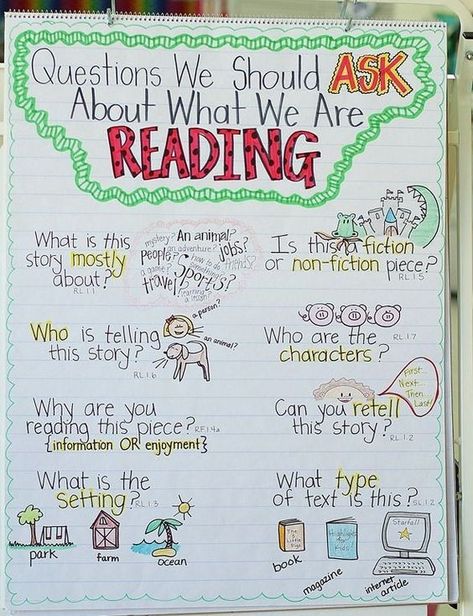 Questions We Should ASK
About What We Are
READING
What is this
story mostly
about?
RL.1.1
mystery?
An animal?
people?
an adventure?
jobs?
a game?
how to do something?
friends?
travel?
Sports?
learning a lesson?
Is this fiction
or non-fiction piece?
RL.1.5
Who is telling
this story?
RL.1.6
a person?
an animal?
Who are the
characters?
RL.1.7
Why are you
reading this piece?
RF.1.4a
{information OR enjoyment}
Can you retell
this story?
RL.1.2
First...
Next...
Then
Last!
What is the
setting?
RL.1.3
park
farm
ocean
What type
of text is this?
SL.1.2
The
Little
Pigs
book
Highlights
for
Kids
magazine
Starfall
internet
article